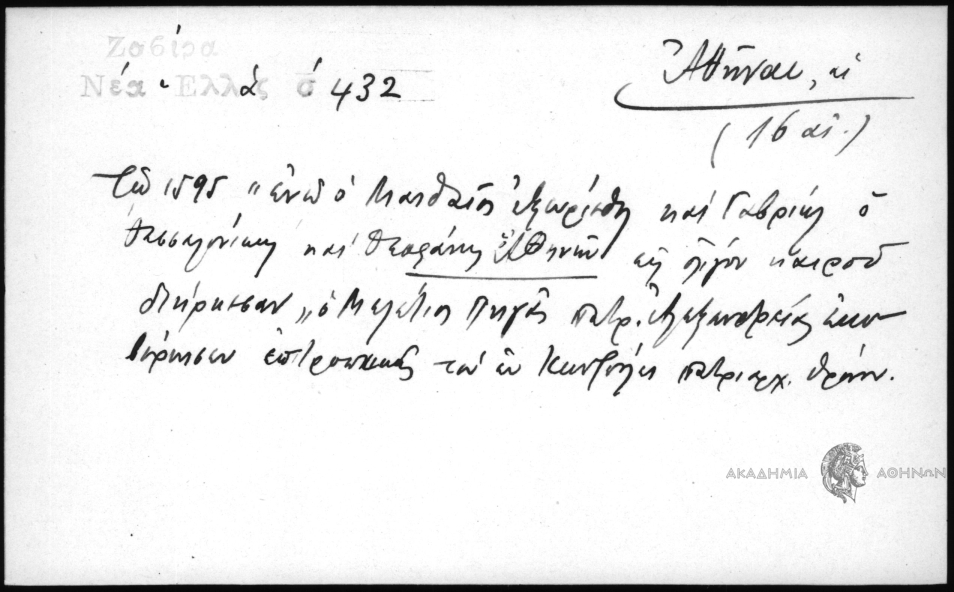 Ζαβίρα
Νέα Ελλάς σ 432
Ἀθῆναι, αἱ
(16 αἰ.)
Τῷ 1595 "ἐνῶ ὁ Ματθαῖος ἐξωρίσθη καὶ Γαβριὴλ ὁ
Θεσσαλονίκης καὶ Θεοφάνης Ἀθηνῶν εἰς ὀλίγον καιρὸν
διήρκεσαν" ὁ Μελέτιος Πηγᾶς πατρ. Ἀλεξανδρείας ἐκυ-
βέρνησεν ἐπιτροπικῶς τὸν ἐν Κων/πόλει πατριαρχ. θρόνον.
ΑΚΑΔΗΜΙΑ ΑΘΗΝΩΝ